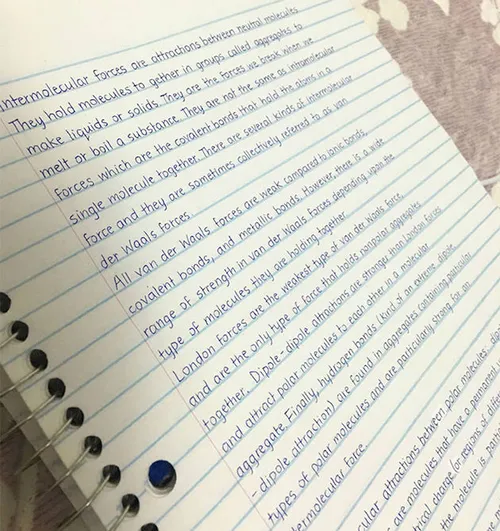 Intermolecular forces are attractions between neutral molecules
They hold molecules to gether in groups called aggregates to
make liquids or solids. They are the forces we break when we
melt or boil a substance. They are not the same as intramolecular
forces which are the covalent bonds that hold the atoms in a
single molecule together. There are several kinds of intermolecular
force and they are sometimes collectively referred to as van
der Waals forces.
All van der Waals forces are weak compared to ionic bonds,
covalent bonds, and metallic bonds. However there is a wide
range of strength in van der Waals forces depending upon the
type of molecules they are holding together
London forces are the weakest type of van der Waals force
and are the only type of force that holds nonpolar aggregates
together. Dipole-dipole attractions are stronger than London forces
and attract polar molecules to each other in a molecular
aggregate. Finally, hydrogen bonds (kind of an extreme dipole
- dipole attraction) are found in aggregates containing particular
types of polar molecules and are particularly strong for an
termolecular force.
cular attractions between polar molecules.
are molecules that have a permanent
ical charge (or regions of differ
the molecule is